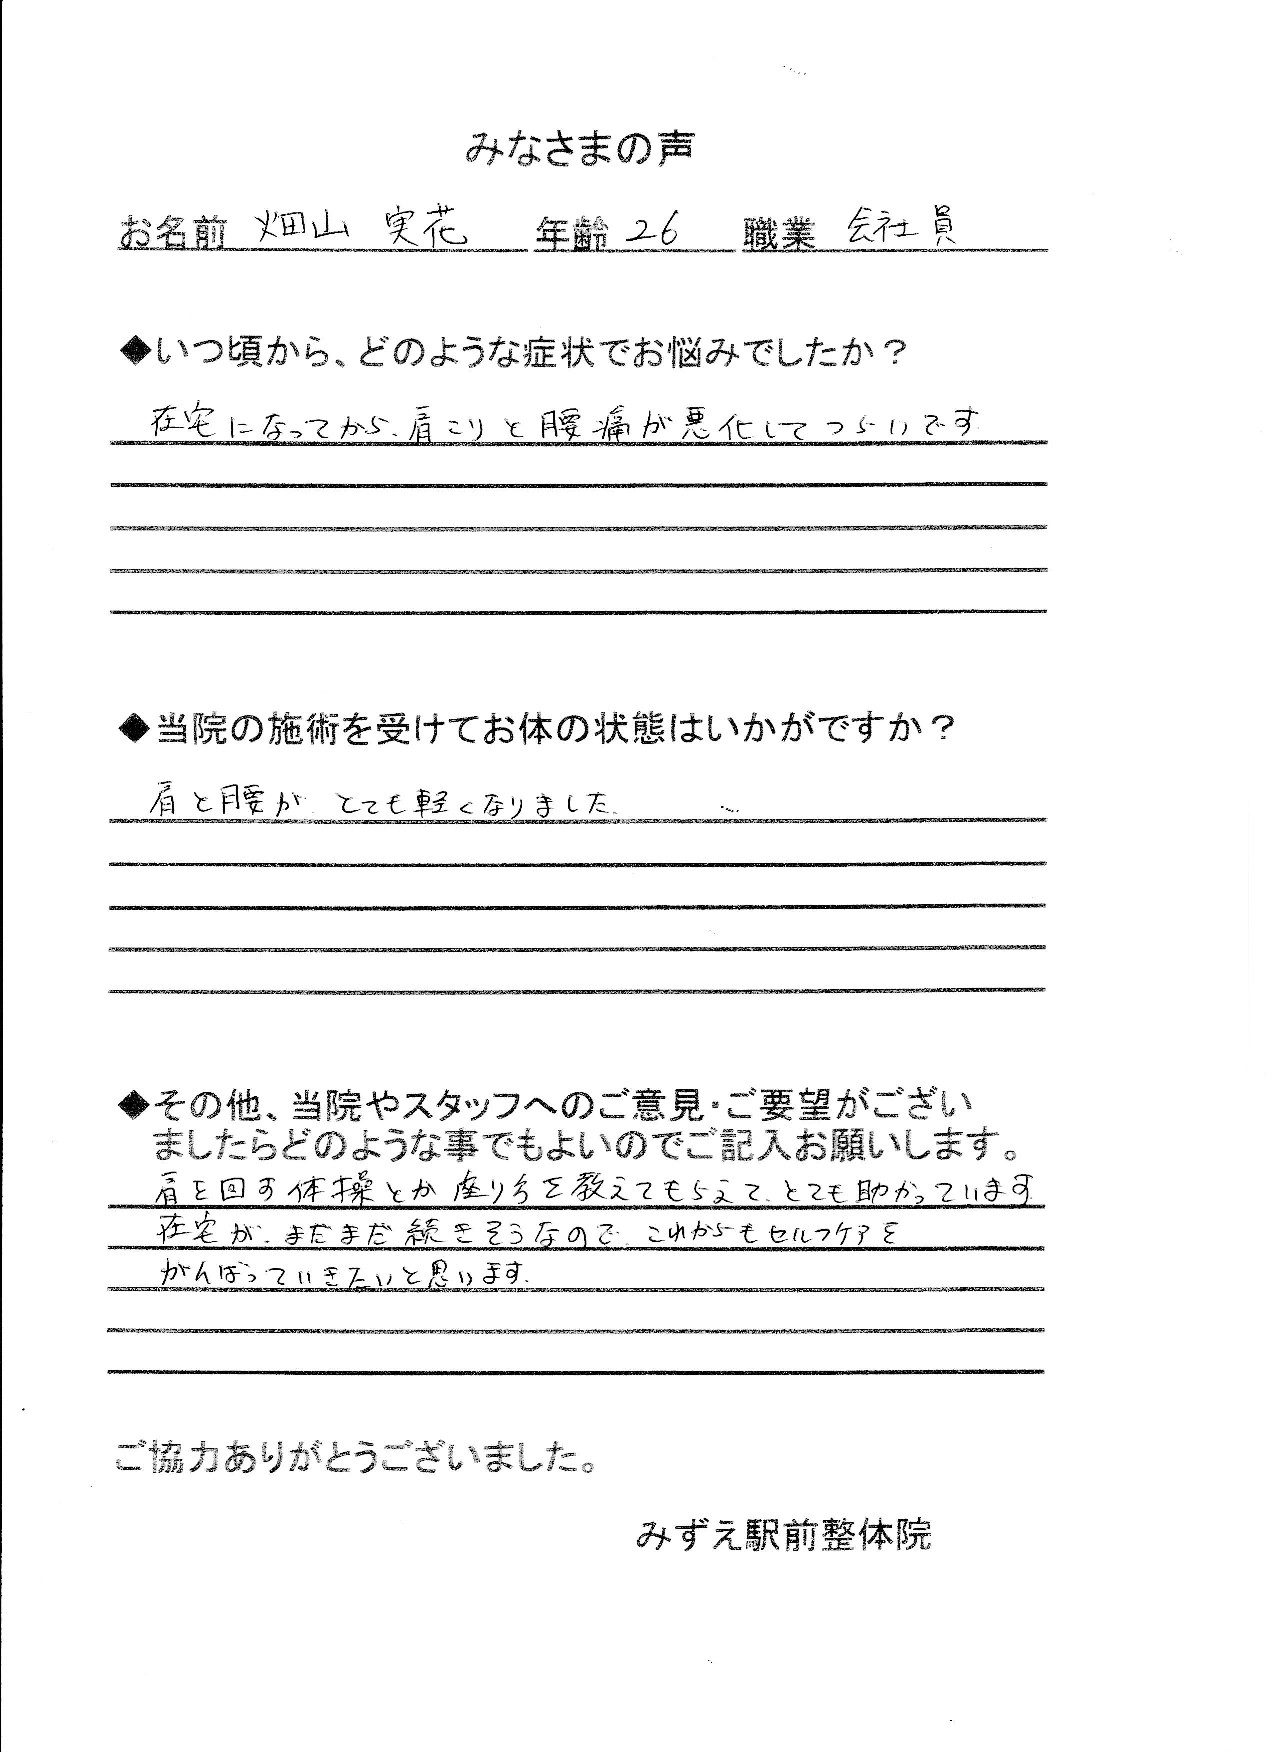 みなさまの声
お名前 畑山 実花 年齢 26 職業 会社員
◆いつ頃から、どのような症状でお悩みでしたか？
在宅になってから、肩こりと腰痛が悪化してつらいです
◆当院の施術を受けてお体の状態はいかがですか？
肩と腰が とても軽くなりました。
◆その他、当院やスタッフへのご意見・ご要望がござい
ましたらどのような事でもよいのでご記入お願いします。
肩を回す体操とか座り方を教えてもらえて、とても助かっています
在宅が、まだまだ続きそうなので、これからもセルフケアを
がんばっていきたいと思います。
ご協力ありがとうございました。
みずえ駅前整体院